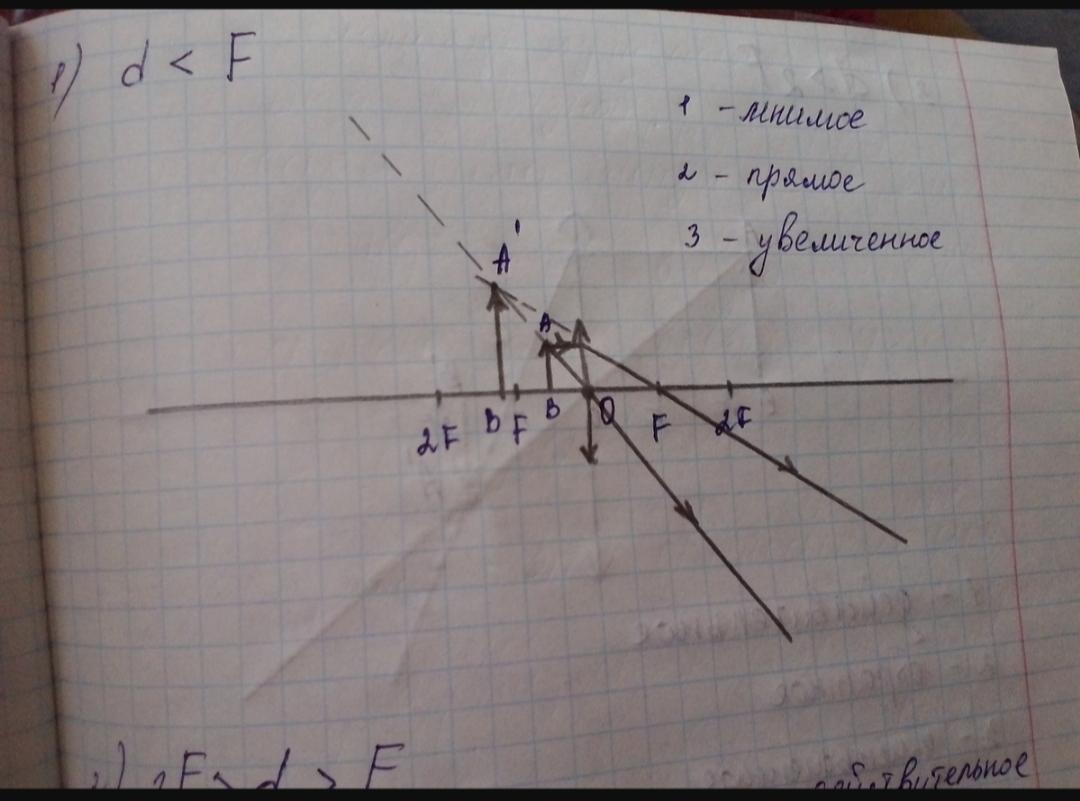 1) d < F
1 - мнимое
2 - прямое
3 - увеличенное
A'
A
2F B F B O F 2F
2) 2F > d > F
действительное